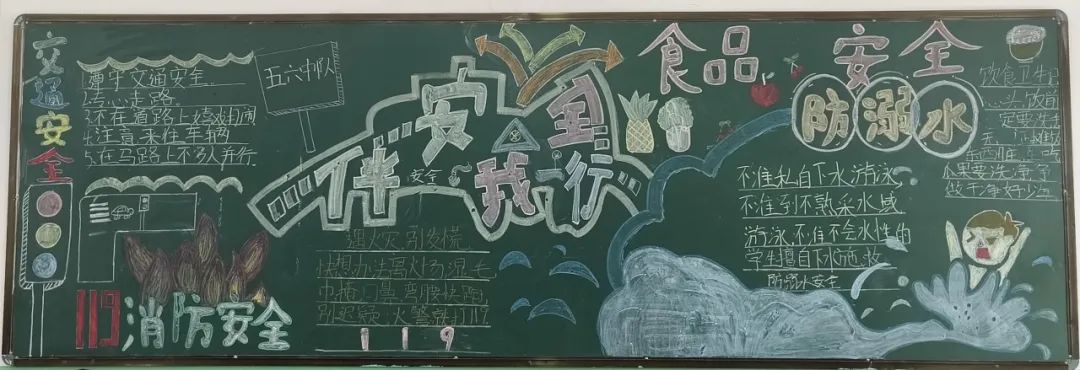 交通安全
1.遵守交通安全.
2.专心走路.
3.不在道路上嬉戏打闹
4.注意来往车辆
5.在马路上不多人并行.
五六中队
安全
伴我行
安全
食品安全
防溺水
饮食卫生
水果要洗净
不准私自下水游泳
不准到不熟采水域
游泳,不准不会水性的
学生擅自下水施救
防溺水安全
遇火灾,别发慌
快想办法离火场湿毛
巾捂口鼻弯腰快跑
火警就打119
119
119消防安全